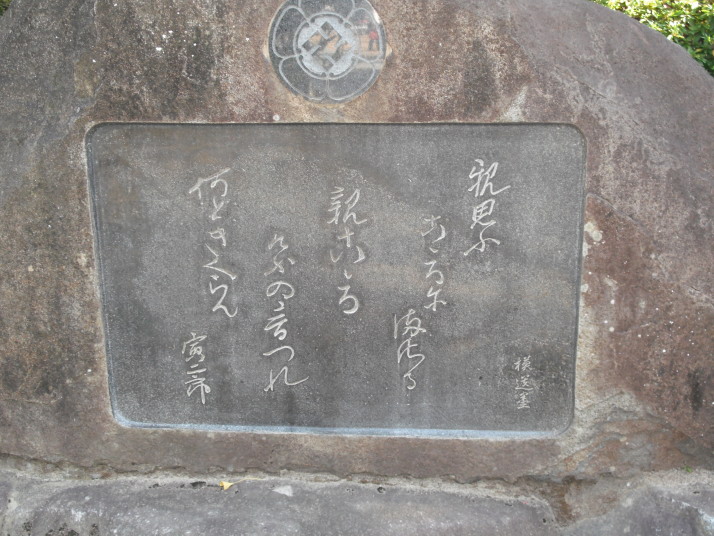 模遺墨
親思ふ
こころに
まさる
親こゝろ
けふの音つれ
何ときくらん
寅二郎